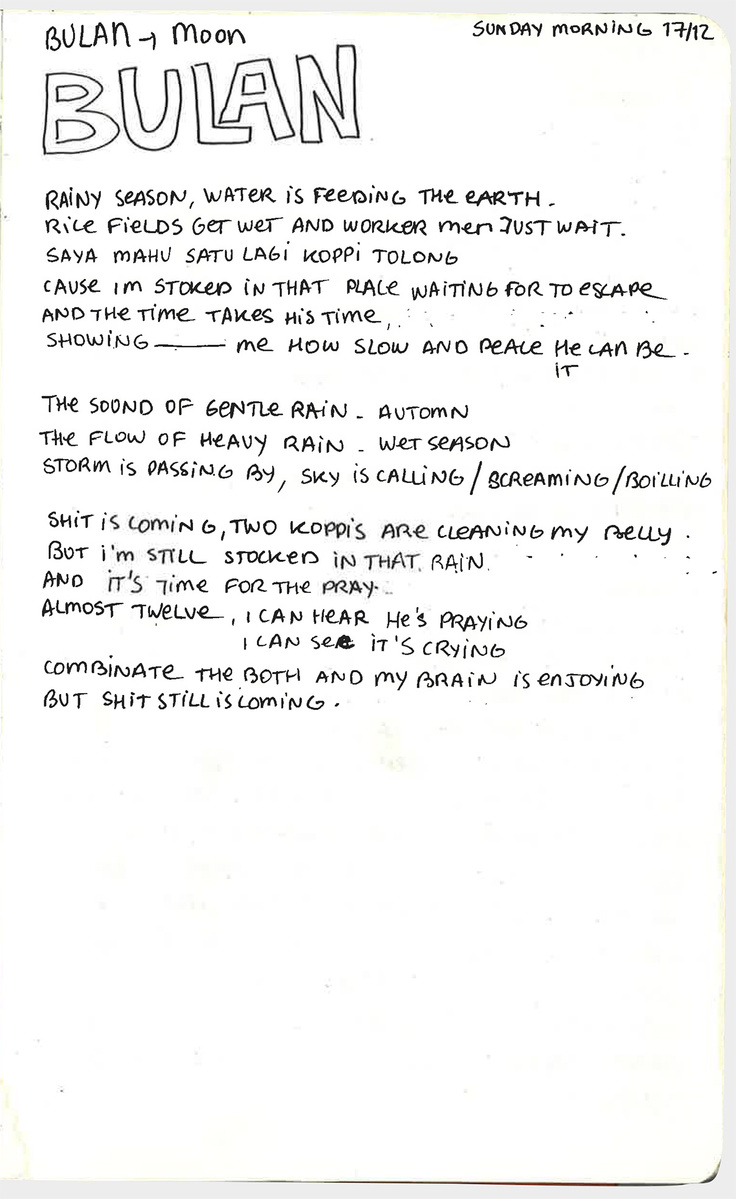 BULAN → MOON
SUNDAY MORNING 17/12
BULAN
RAINY SEASON, WATER IS FEEDING THE EARTH.
RICE FIELDS GET WET AND WORKER MEN JUST WAIT.
SAYA MAHU SATU LAGI KOPPI TOLONG
CAUSE IM STOKED IN THAT PLACE WAITING FOR TO ESCAPE
AND THE TIME TAKES HIS TIME,
SHOWING —— ME HOW SLOW AND PEACE HE CAN BE.
IT
THE SOUND OF GENTLE RAIN - AUTOMN
THE FLOW OF HEAVY RAIN - WET SEASON
STORM IS PASSING BY, SKY IS CALLING / SCREAMING / BOILLING
SHIT IS COMING, TWO KOPPIS ARE CLEANING MY BELLY.
BUT I'M STILL STOCKED IN THAT RAIN.
AND IT'S TIME FOR THE PRAY.
ALMOST TWELVE, I CAN HEAR HE'S PRAYING
I CAN SEE IT'S CRYING
COMBINATE THE BOTH AND MY BRAIN IS ENJOYING
BUT SHIT STILL IS COMING.